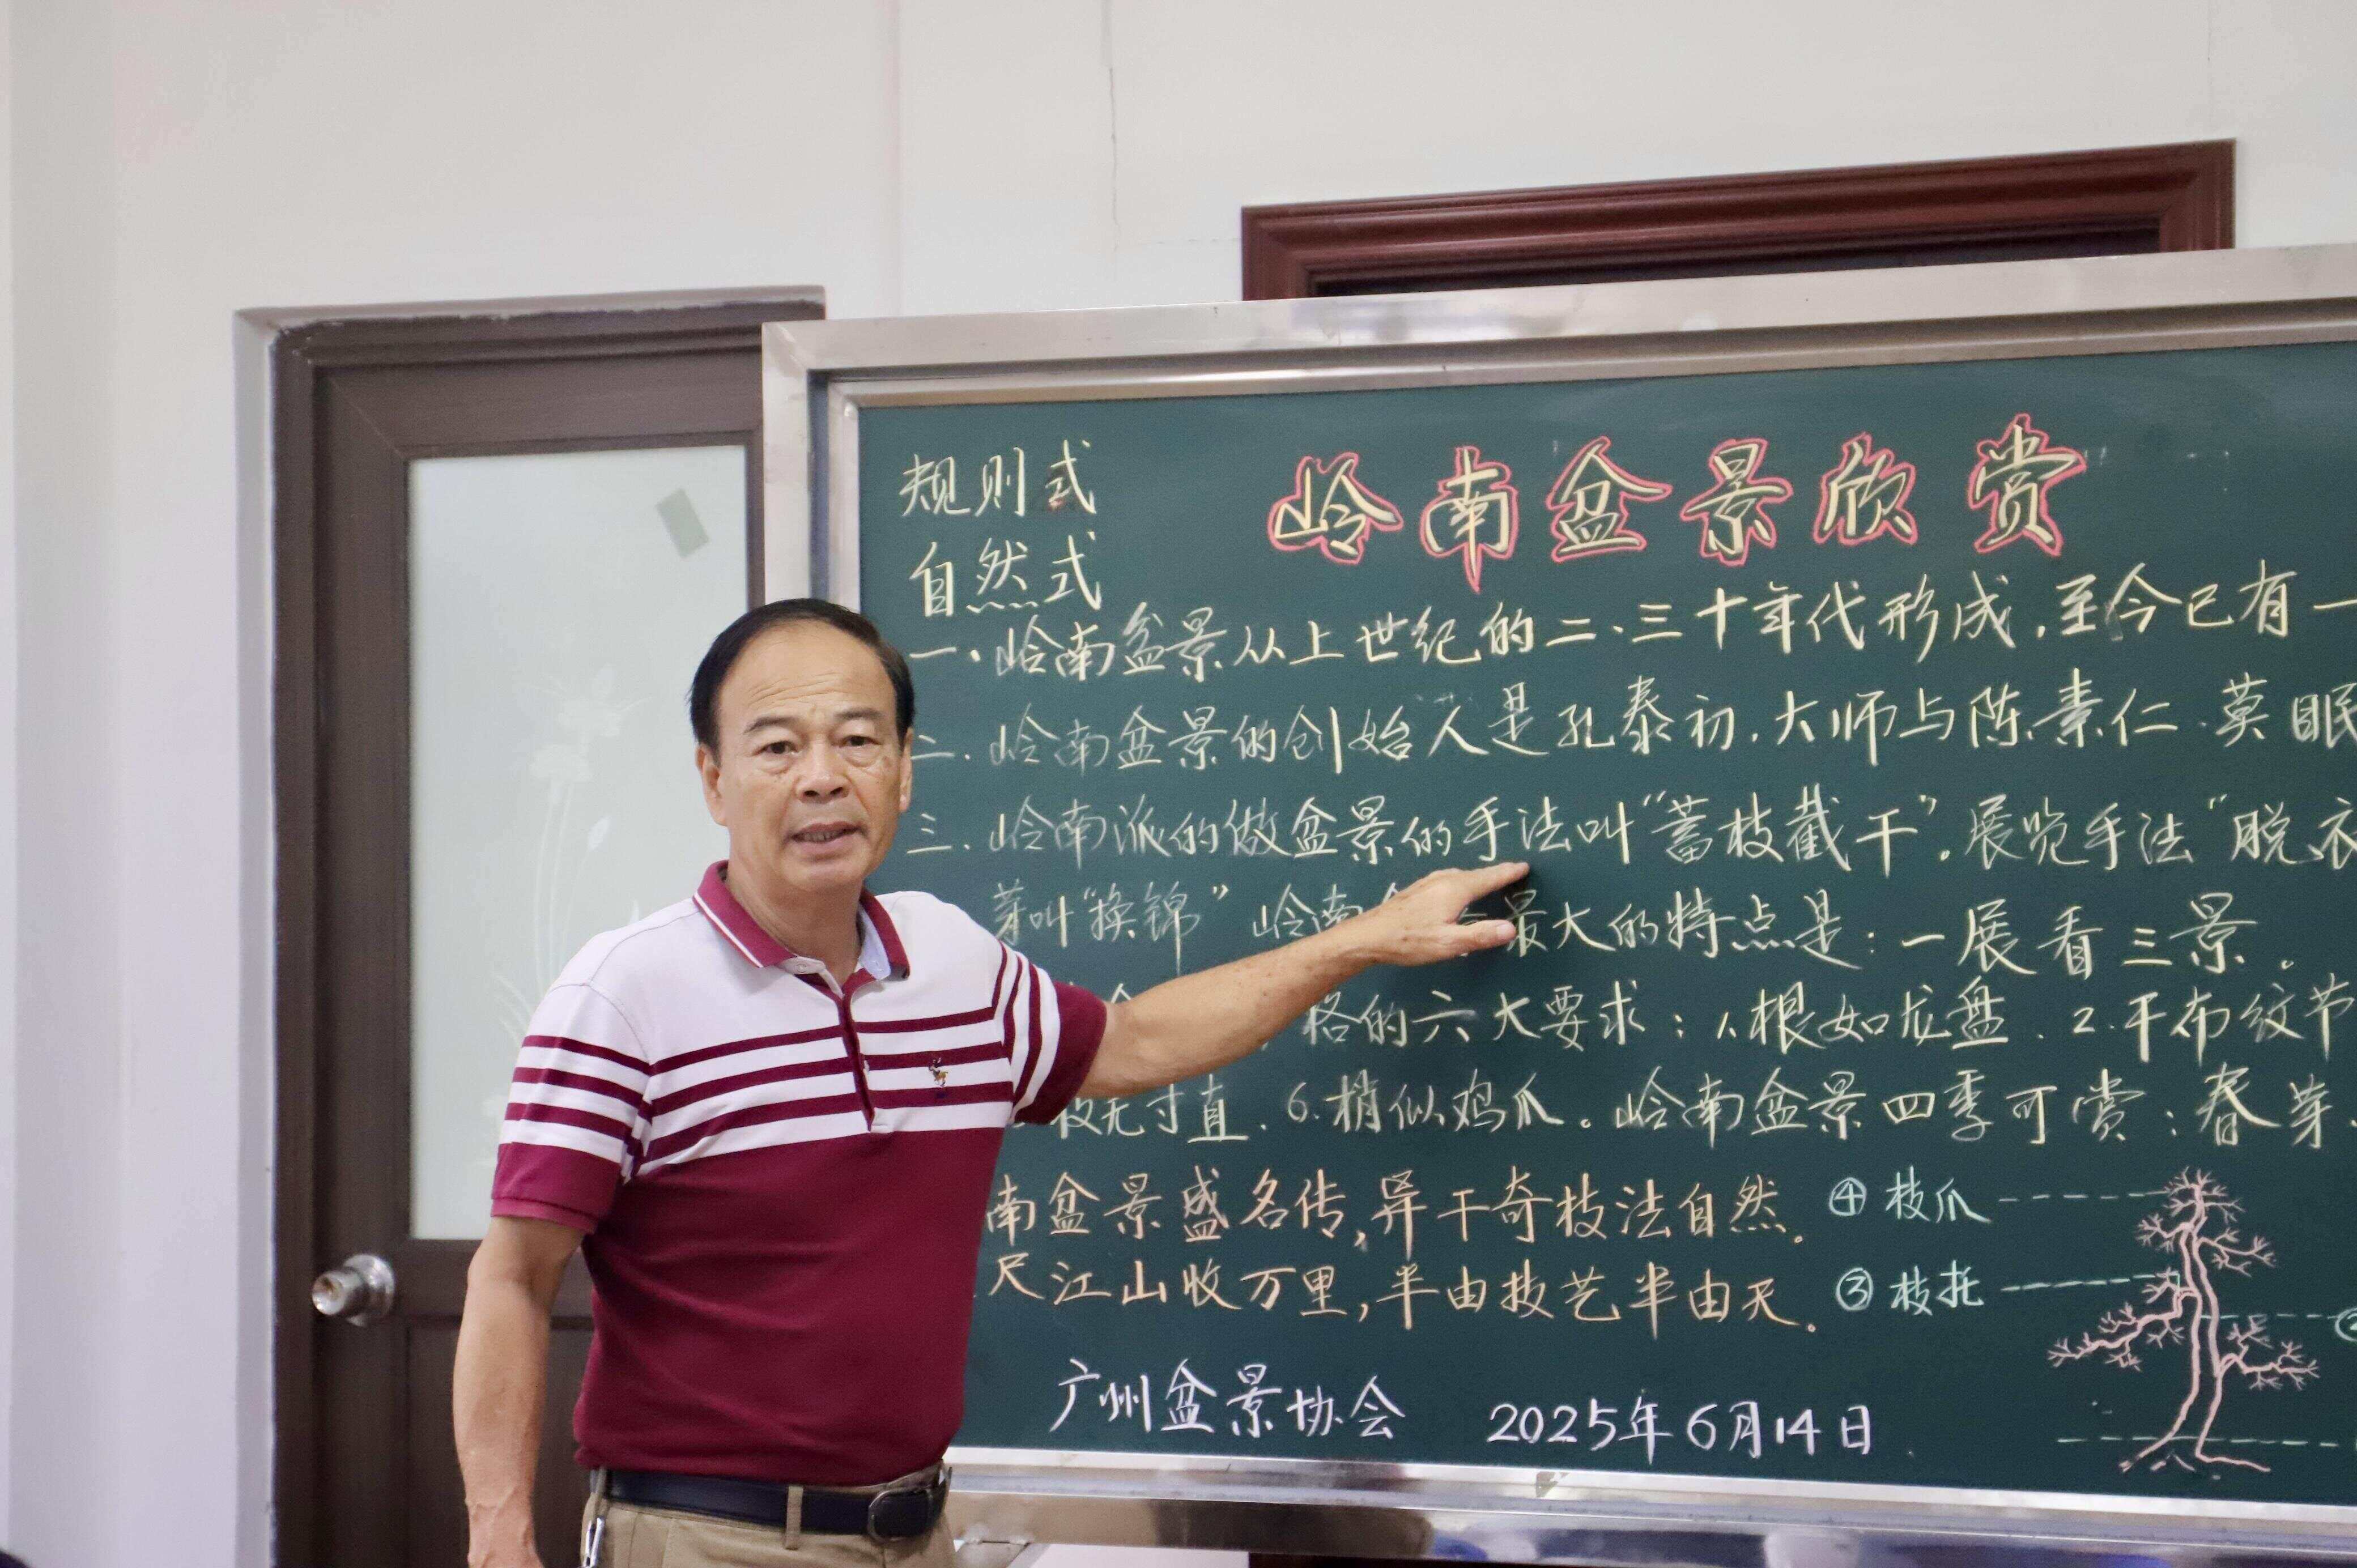 规则式
岭南盆景欣赏
自然式
一、岭南盆景从上世纪的二、三十年代形成,至今已有一
二.岭南盆景的创始人是孔泰初.大师与陈素仁.莫眠
三.岭南派的做盆景的手法叫“蓄枝截干”.展览手法“脱衣
芽叫“换锦”岭南 最大的特点是:一展看三景。
格的六大要求:1.根如龙盘.2.干布纹节
枝无寸直.6.梢似鸡爪。岭南盆景四季可赏:春芽.
南盆景盛名传,异干奇枝法自然.
④枝爪
尺江山收万里,半由技艺半由天.
③枝托
广州盆景协会 2025年6月14日